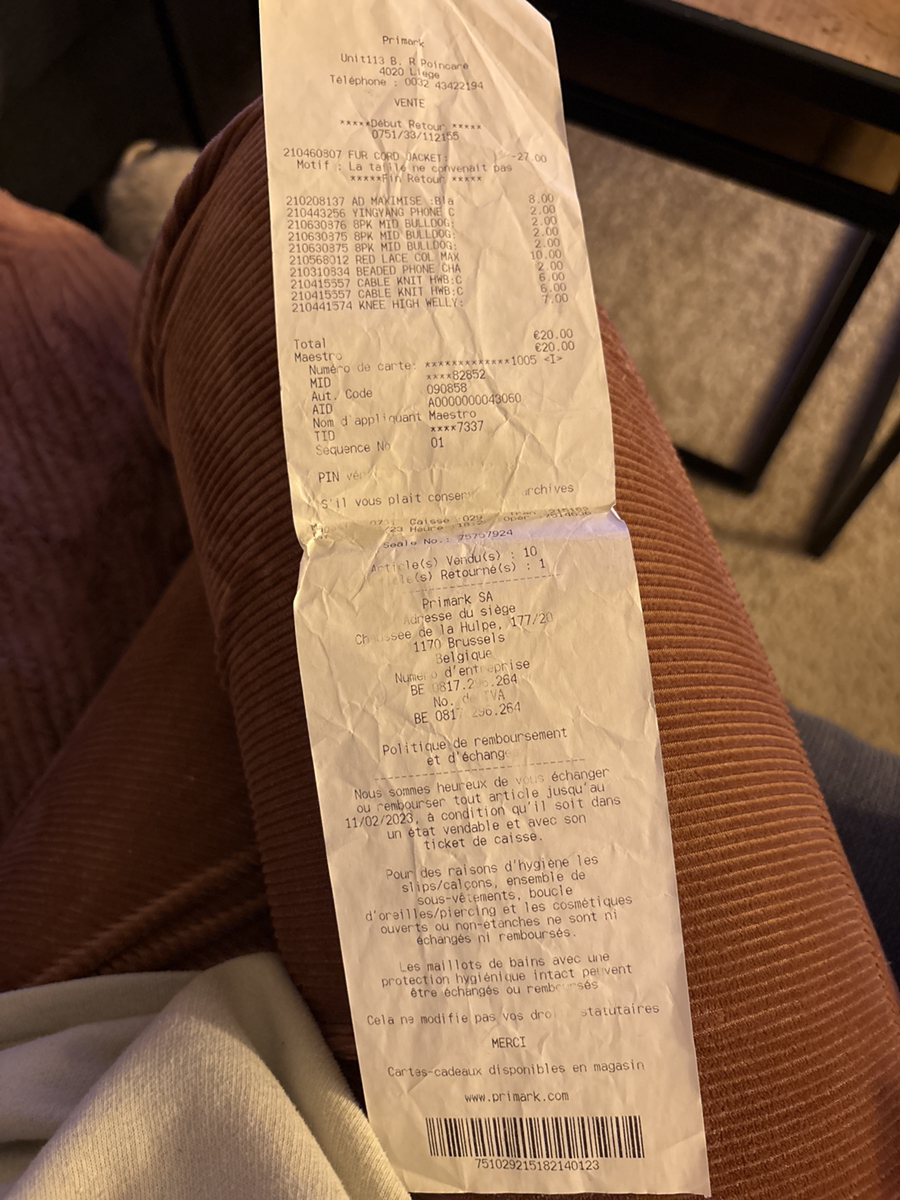 Primark
Unit113 B. R Poincare
4020 Liege
Téléphone : 0032 43422194
VENTE
*****Début Retour *****
0751/33/112155
210460807 FUR CORD JACKET: -27.00
Motif : La taille ne convenait pas
*****Fin Retour *****
210208137 AD MAXIMISE :Bla 8.00
210443256 YINGYANG PHONE C 2.00
210630876 8PK MID BULLDOG: 2.00
210630875 8PK MID BULLDOG: 2.00
210630875 8PK MID BULLDOG: 2.00
210568012 RED LACE COL MAX 10.00
210310834 BEADED PHONE CHA 2.00
210415557 CABLE KNIT HWB:C 6.00
210415557 CABLE KNIT HWB:C 6.00
210441574 KNEE HIGH WELLY: 7.00
Total €20.00
Maestro €20.00
Numéro de carte: ************1005 <I>
MID ****82852
Aut. Code 090858
AID A0000000043060
Nom d'appliquant Maestro
TID ****7337
Sequence No 01
PIN
S'il vous plait archives
Caisse :029
/23 Heure
Seale No.: 95757924
Article(s) Vendu(s) : 10
Retourné(s) : 1
Primark SA
Adresse du siège
Chaussée de la Hulpe, 177/20
1170 Brussels
Belgique
Numéro d'entreprise
BE 0817.296.264
No. de TVA
BE 0817.296.264
Politique de remboursement
et d'échange
Nous sommes heureux de vous échanger
ou rembourser tout article jusqu'au
11/02/2023, à condition qu'il soit dans
un état vendable et avec son
ticket de caisse.
Pour des raisons d'hygiène les
slips/calçons, ensemble de
sous-vêtements, boucle
d'oreilles/piercing et les cosmétiques
ouverts ou non-étanches ne sont ni
échangés ni remboursés.
Les maillots de bains avec une
protection hygiénique intact peuvent
être échangés ou remboursés
Cela ne modifie pas vos droits statutaires
MERCI
Cartes-cadeaux disponibles en magasin
www.primark.com
751029215182140123